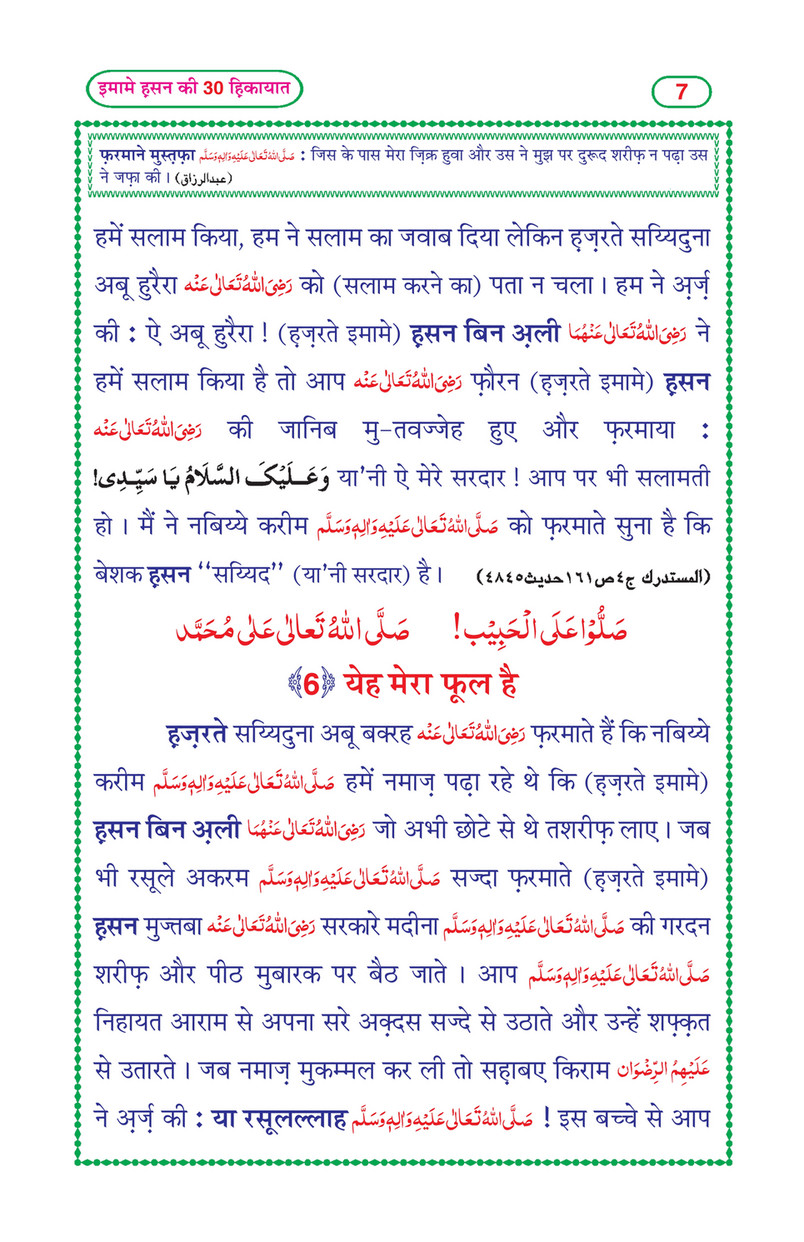 इमामे ह़सन की 30 ह़िकायात
7
फ़रमाने मुस्त़फ़ा صَلَّى اللهُ تَعَالٰى عَلَيْهِ وَاٰلِهٖ وَسَلَّم : जिस के पास मेरा ज़िक्र हुवा और उस ने मुझ पर दुरूद शरीफ़ न पढ़ा उस
ने जफ़ा की । (عبدالرزاق)
हमें सलाम किया, हम ने सलाम का जवाब दिया लेकिन ह़ज़रते सय्यिदुना
अबू हुरैरा رَضِىَ اللهُ تَعَالٰى عَنْه को (सलाम करने का) पता न चला । हम ने अ़र्ज़
की : ऐ अबू हुरैरा ! (ह़ज़रते इमामे) ह़सन बिन अ़ली رَضِىَ اللهُ تَعَالٰى عَنْهُمَا ने
हमें सलाम किया है तो आप رَضِىَ اللهُ تَعَالٰى عَنْه फ़ौरन (ह़ज़रते इमामे) ह़सन
رَضِىَ اللهُ تَعَالٰى عَنْه की जानिब मु-तवज्जेह हुए और फ़रमाया :
وَعَلَيْكَ السَّلَامُ يَا سَيِّدِى! या'नी ऐ मेरे सरदार ! आप पर भी सलामती
हो । मैं ने नबिय्ये करीम صَلَّى اللهُ تَعَالٰى عَلَيْهِ وَاٰلِهٖ وَسَلَّم को फ़रमाते सुना है कि
बेशक ह़सन ‘‘सय्यिद’’ (या'नी सरदार) है । (المستدرك ج٤ ص١٦١ حديث٤٨٤٥)
صَلُّوْا عَلَى الْحَبِيْب! صَلَّى اللهُ تَعَالٰى عَلٰى مُحَمَّد
﴾6﴿ येह मेरा फूल है
ह़ज़रते सय्यिदुना अबू बक्रह رَضِىَ اللهُ تَعَالٰى عَنْه फ़रमाते हैं कि नबिय्ये
करीम صَلَّى اللهُ تَعَالٰى عَلَيْهِ وَاٰلِهٖ وَسَلَّم हमें नमाज़ पढ़ा रहे थे कि (ह़ज़रते इमामे)
ह़सन बिन अ़ली رَضِىَ اللهُ تَعَالٰى عَنْهُمَا जो अभी छोटे से थे तशरीफ़ लाए । जब
भी रसूले अकरम صَلَّى اللهُ تَعَالٰى عَلَيْهِ وَاٰلِهٖ وَسَلَّم सज्दा फ़रमाते (ह़ज़रते इमामे)
ह़सन मुज्तबा رَضِىَ اللهُ تَعَالٰى عَنْه सरकारे मदीना صَلَّى اللهُ تَعَالٰى عَلَيْهِ وَاٰلِهٖ وَسَلَّم की गरदन
शरीफ़ और पीठ मुबारक पर बैठ जाते । आप صَلَّى اللهُ تَعَالٰى عَلَيْهِ وَاٰلِهٖ وَسَلَّم
निहायत आराम से अपना सरे अक़्दस सज्दे से उठाते और उन्हें शफ़्क़त
से उतारते । जब नमाज़ मुकम्मल कर ली तो सह़ाबए किराम عَلَيْهِمُ الرِّضْوَان
ने अ़र्ज़ की : या रसूलल्लाह صَلَّى اللهُ تَعَالٰى عَلَيْهِ وَاٰلِهٖ وَسَلَّم ! इस बच्चे से आप